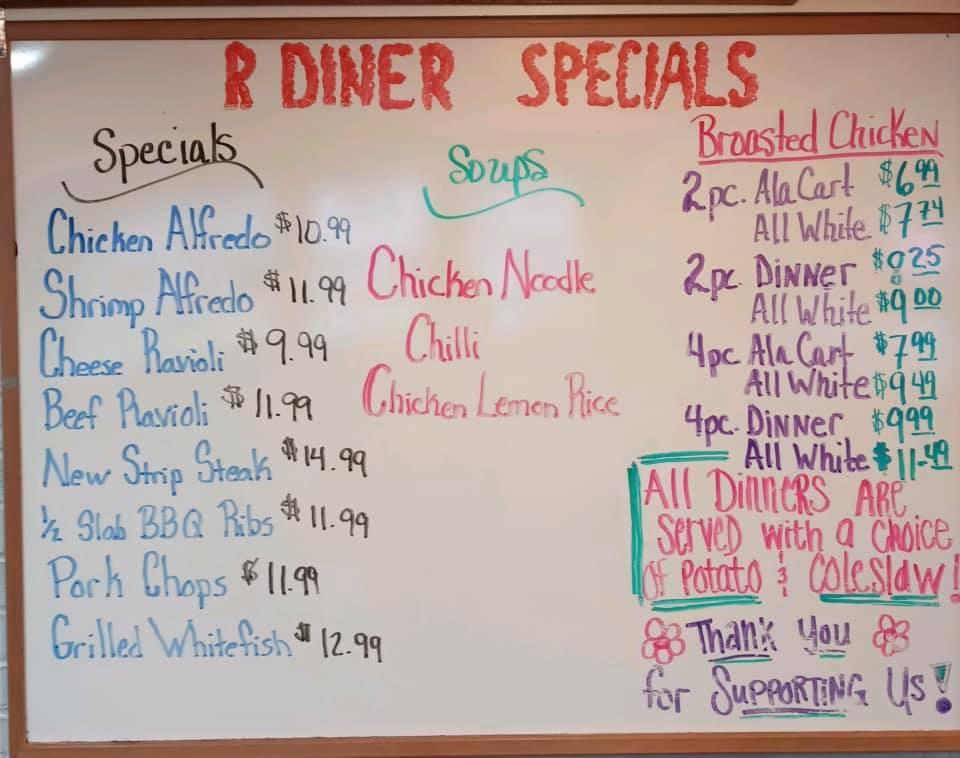 R DINER SPECIALS
Specials
Chicken Alfredo $10.99
Shrimp Alfredo $11.99
Cheese Ravioli $9.99
Beef Ravioli $11.99
New Strip Steak $14.99
½ Slab BBQ Ribs $11.99
Pork Chops $11.99
Grilled Whitefish $12.99
Soups
Chicken Noodle
Chilli
Chicken Lemon Rice
Broasted Chicken
2pc. Ala Cart $6.99
All White $7.74
2pc. Dinner
All White $9.00
4pc Ala Cart $7.99
All White $9.49
4pc. Dinner $9.99
All White $11.49
All Dinners Are
Served with a Choice
of Potato & Coleslaw!
Thank You
for Supporting Us!